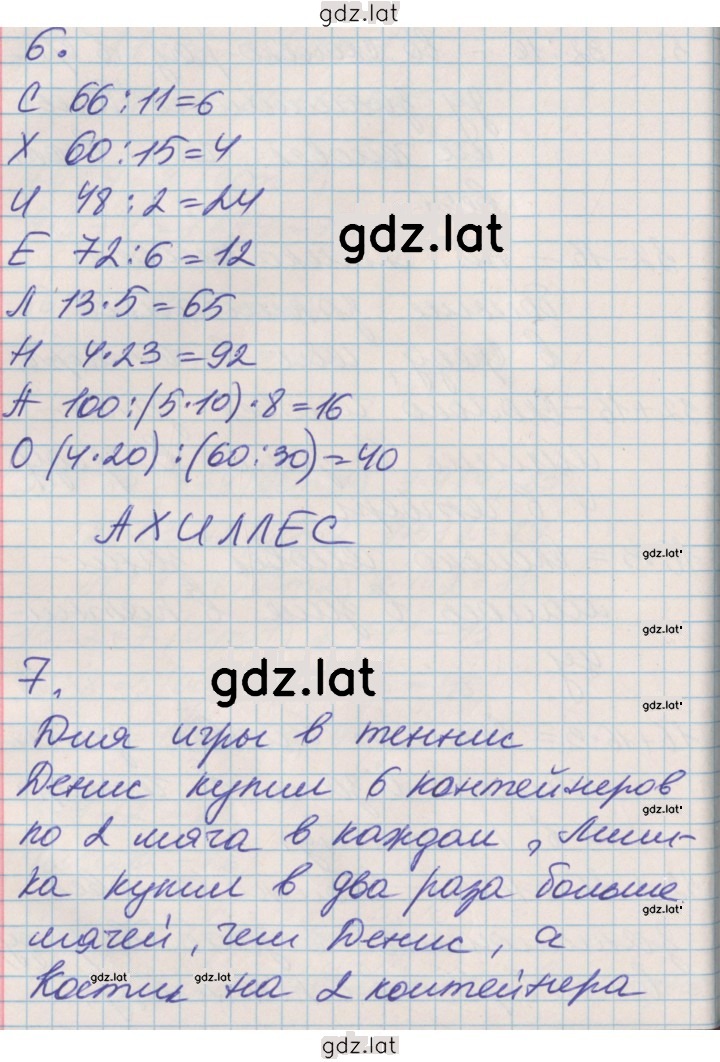 gdz.lat
6.
С 66:11=6
Х 60:15=4
И 48:2=24
gdz.lat
Е 72:6=12
Л 13·5=65
Н 4·23=92
А 100:(5·10)·8=16
О (4·20):(60:30)=40
АХИЛЛЕС
gdz.lat
gdz.lat
7.
gdz.lat
gdz.lat
Для игры в теннис
Денис купил 6 контейнеров
gdz.lat
по 2 мяча в каждом, Миш-
ка купил в два раза больше
gdz.lat
мячей, чем Денис, а
gdz.lat
gdz.lat
Костик на 2 контейнера
gdz.lat